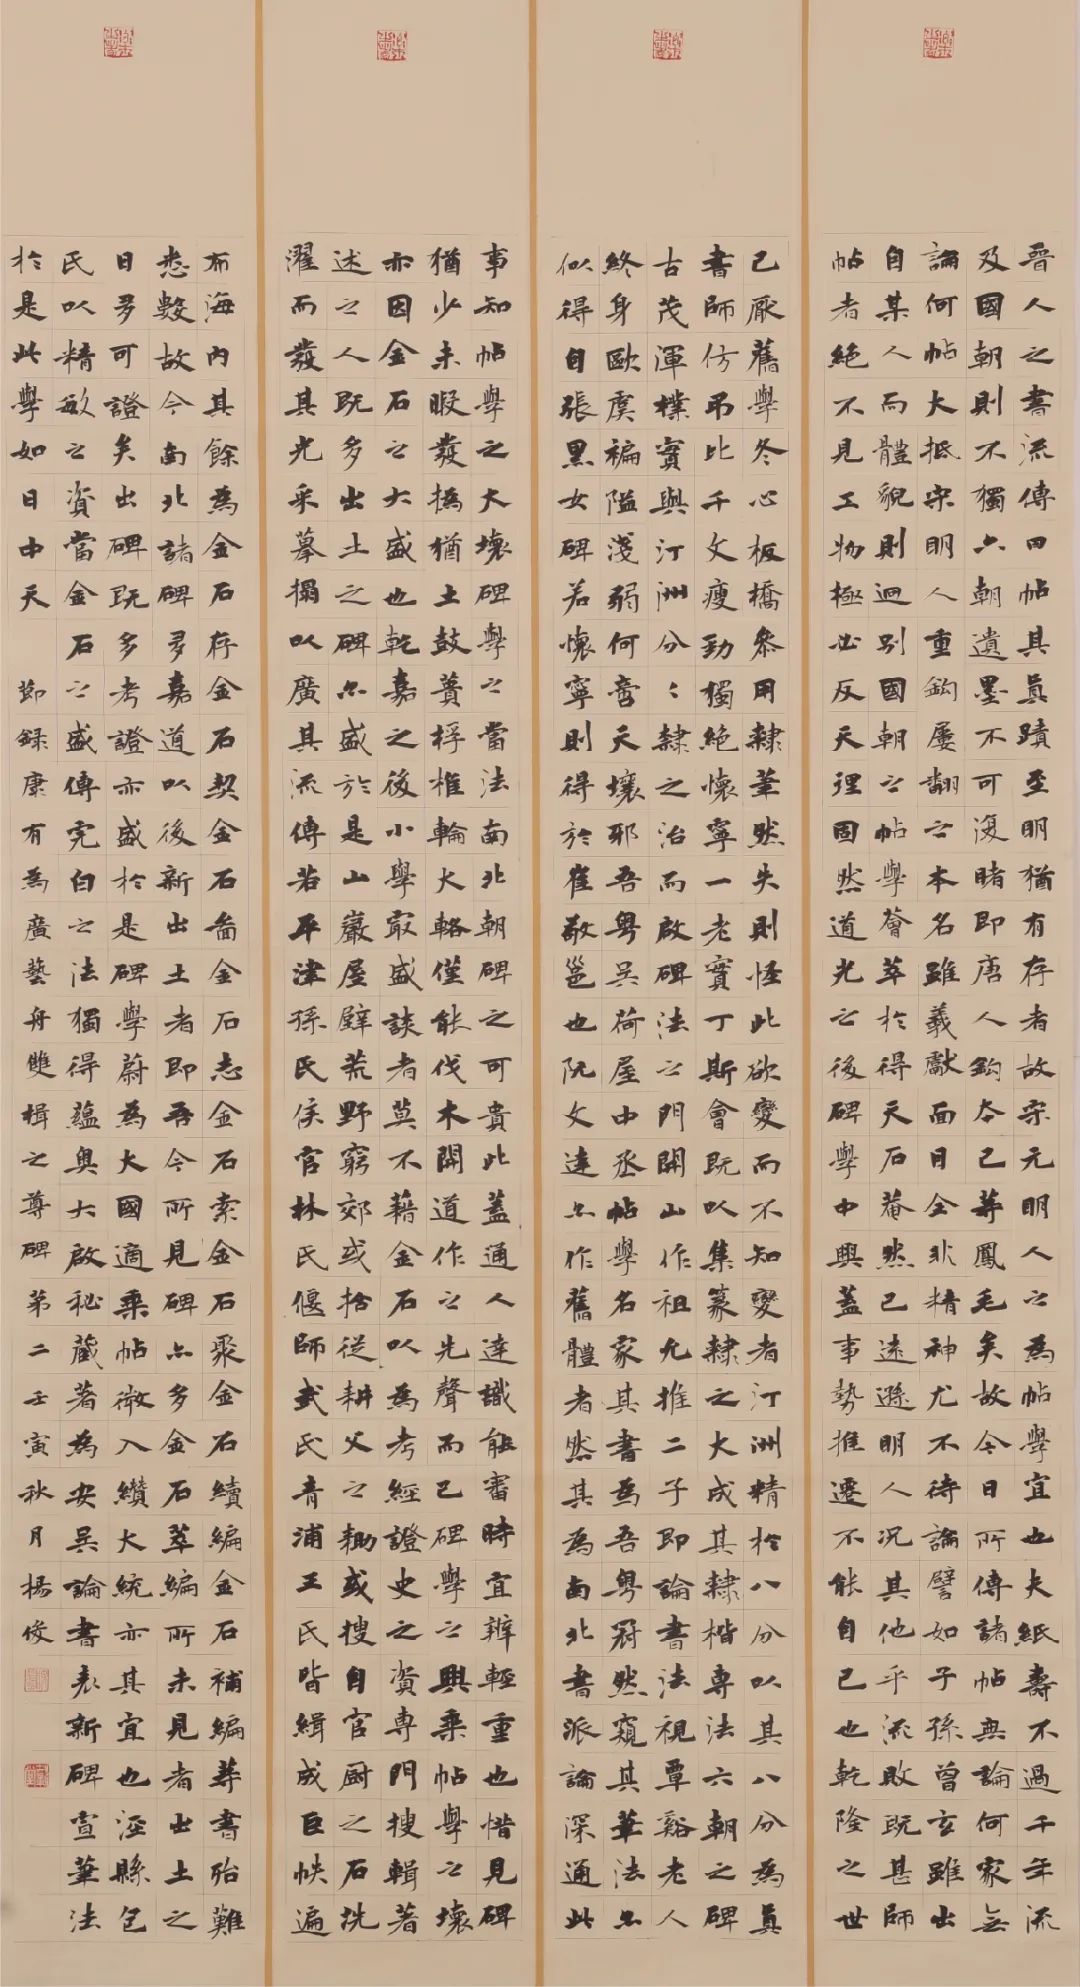 晉人之書流傳曰帖其真蹟至明猶有存者故宋元明人之為帖學宜也夫紙壽不過千年流
及國朝則不獨六朝遺墨不可復睹即唐人鈎本已等鳳毛矣故今日所傳諸帖無論何家無
論何帖大抵宋明人重鈎屢翻之本名雖羲獻面目全非精神尤不待論譬如子孫曾玄雖出
自某人而體貌則迥別國朝之帖學薈萃於得天石菴然已遠遜明人況其他乎流敗既甚師
帖者絕不見工物極必反天理固然道光之後碑學中興蓋事勢推遷不能自已也乾隆之世
已厭舊學冬心板橋參用隸筆然失則怪此欲變而不知變者汀洲精於八分以其八分為真
書師仿吊比干文瘦勁獨絕懷寧一老實丁斯會既以集篆隸之大成其隸楷專法六朝之碑
古茂渾樸實與汀洲分〻隸之治而啟碑法之門開山作祖允推二子即論書法視覃谿老人
終身歐虞褊隘淺弱何啻天壤邪吾粵吳荷屋中丞帖學名家其書為吾粵冠然窺其筆法亦
似得自張黑女碑若懷寧則得於崔敬邕也阮文達亦作舊體者然其為南北書派論深通此
事知帖學之大壞碑學之當法南北朝碑之可貴此蓋通人達識能審時宜辨輕重也惜見碑
猶少未暇發撝猶土鼓蕢桴椎輪大輅僅能伐木開道作之先聲而已碑學之興乘帖學之壞
亦因金石之大盛也乾嘉之後小學最盛談者莫不藉金石以為考經證史之資專門搜輯著
述之人既多出土之碑亦盛於是山巖屋壁荒野窮郊或拾從耕父之耡或搜自官厨之石洗
濯而發其光采摹搨以廣其流傳若平津孫氏侯官林氏偃師武氏青浦王氏皆緝成巨帙遍
布海內其餘為金石存金石契金石圖金石志金石索金石聚金石續編金石補編等書殆難
悉數故今南北諸碑多嘉道以後新出土者即吾今所見碑亦多金石萃編所未見者出土之
日多可證矣出碑既多考證亦盛於是碑學蔚為大國適乘帖微入纘大統亦其宜也涇縣包
氏以精敏之資當金石之盛傳完白之法獨得蘊奧大啟秘藏著為安吳論書表新碑宣筆法
於是此學如日中天 節錄康有為廣藝舟雙楫之尊碑第二壬寅秋月楊俊